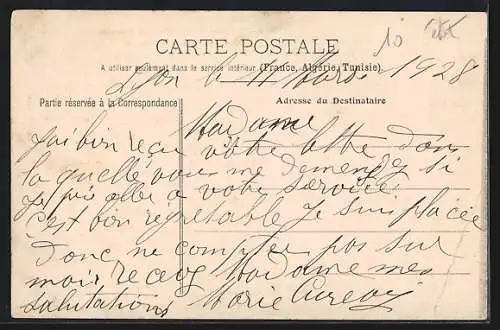 10
CARTE POSTALE
A utiliser seulement dans le service intérieur (France, Algérie, Tunisie).
Lyon le 4 Mars 1928
Partie réservée à la Correspondance
Adresse du Destinataire
Madame
J'ai bien reçu votre lettre dans
la quelle vous me demendez si
je puis aller a votre service
c'est bien regretable je suis placée
donc ne compter pas sur
moi recevez Madame mes
salutations Marie